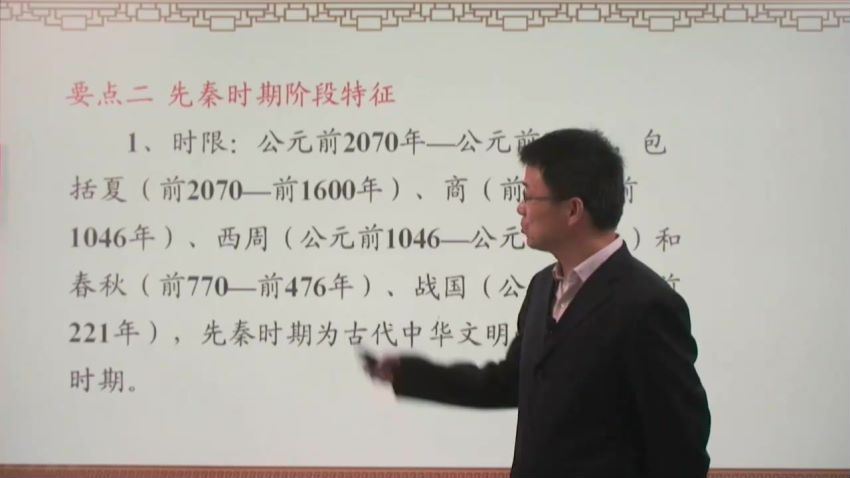 要点二 先秦时期阶段特征
1、时限：公元前2070年—公元前 。包
括夏（前2070—前1600年）、商（前 前
1046年）、西周（公元前1046—公元 ）和
春秋（前770—前476年）、战国（公 前
221年），先秦时期为古代中华文明
时期。